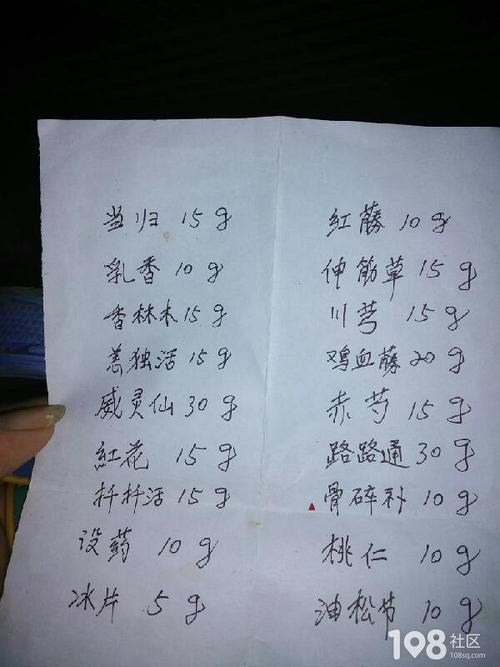 当归 15g
乳香 10g
香林木 15g
羌独活 15g
威灵仙 30g
紅花 15g
扦扦活 15g
设药 10g
冰片 5g
紅藤 10g
伸筋草 15g
川芎 15g
鸡血藤 20g
赤芍 15g
路路通 30g
骨碎补 10g
桃仁 10g
油松节 10g
108社区
108sq.com